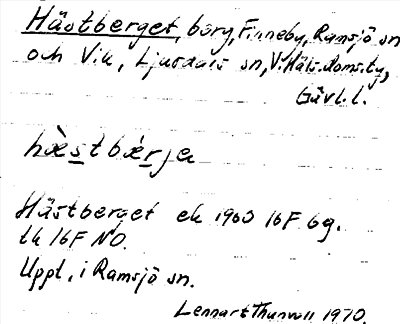 Hästberget, berg, Finneby, Ramsjö sn
och Vik, Ljusdals sn, V. Häls. doms.ty,
Gävl. l.
hæ̀stbær̀ja
Hästberget ek 1963 16F 6g.
tk 16F NO.
Uppt. i Ramsjö sn.
Lennart Thunwall 1970.